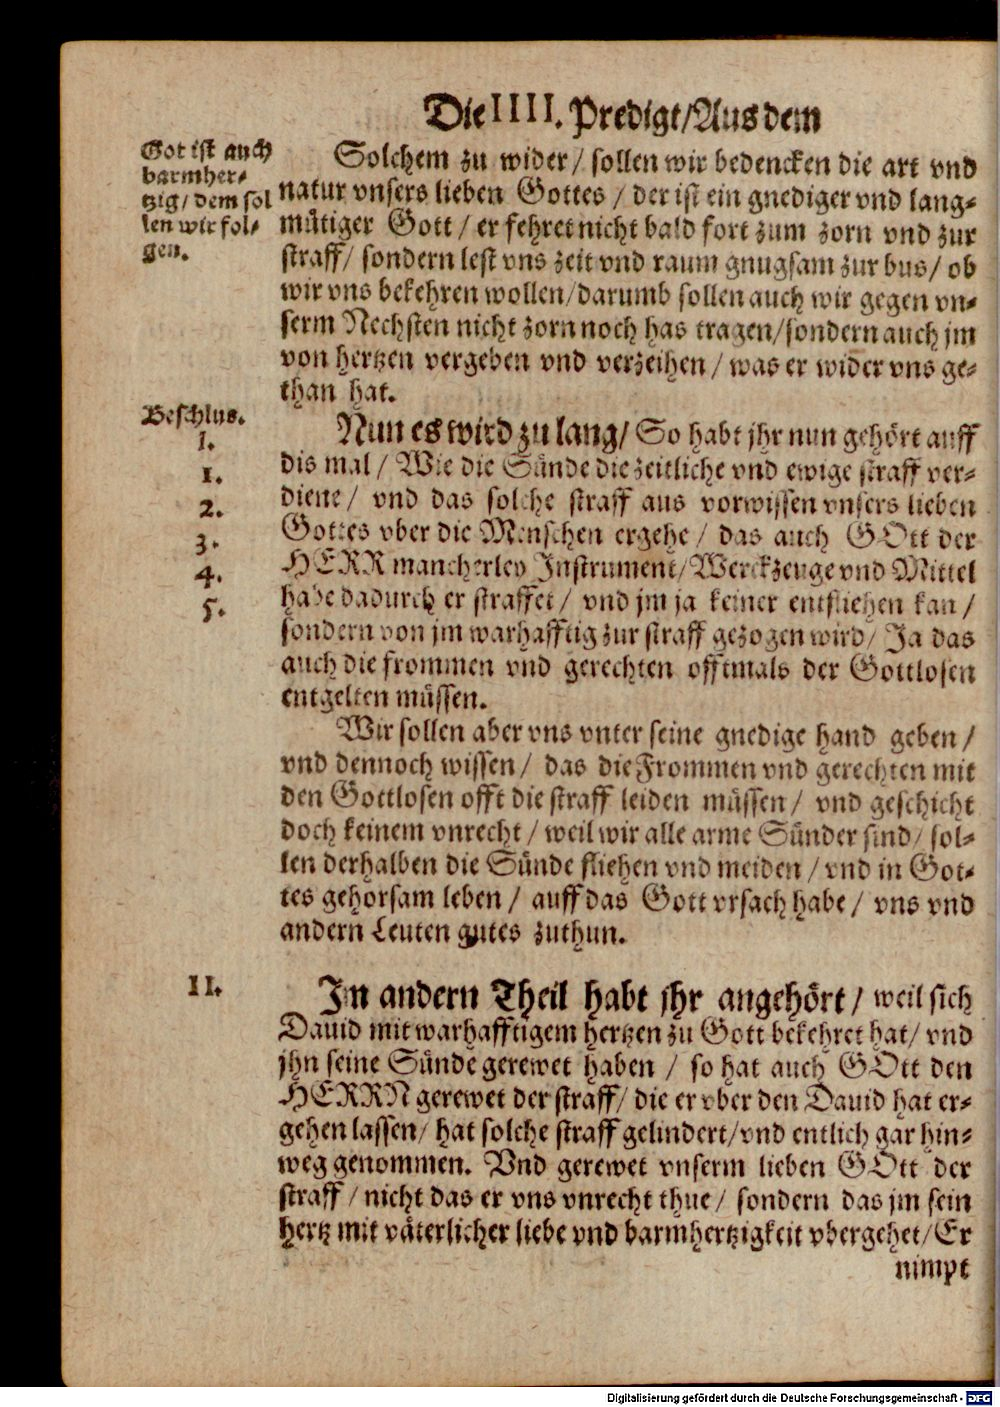 Die IIII. Predigt/Aus dem
Got ist auch
barmher-
tzig/ dem sol
len wir fol-
gen.
Solchem zu wider/ sollen wir bedencken die art vnd
natur vnsers lieben Gottes/ der ist ein gnediger vnd lang-
mütiger Gott/ er fehret nicht bald fort zum zorn vnd zur
straff/ sondern lest vns zeit vnd raum gnugsam zur bus/ ob
wir vns bekehren wollen/darumb sollen auch wir gegen vn-
serm Nechsten nicht zorn noch has tragen/sondern auch jm
von hertzen vergeben vnd verzeihen/ was er wider vns ge-
than hat.
Beschlus.
I.
1.
2.
3.
4.
5.
Nun es wird zu lang/ So habt jhr nun gehört auff
dis mal/ Wie die Sünde die zeitliche vnd ewige straff ver-
diene/ vnd das solche straff aus vorwissen vnsers lieben
Gottes vber die Menschen ergehe/ das auch GOtt der
HERR mancherley Instrument/Werckzeuge vnd Mittel
habe dadurch er straffet/ vnd jm ja keiner entfliehen kan/
sondern von jm warhafftig zur straff gezogen wird/ Ja das
auch die frommen vnd gerechten offtmals der Gottlosen
entgelten müssen.
Wir sollen aber vns vnter seine gnedige hand geben/
vnd dennoch wissen/ das die Frommen vnd gerechten mit
den Gottlosen offt die straff leiden müssen/ vnd geschicht
doch keinem vnrecht/ weil wir alle arme Sünder sind/ sol-
len derhalben die Sünde fliehen vnd meiden/ vnd in Got-
tes gehorsam leben/ auff das Gott vrsach habe/ vns vnd
andern Leuten gutes zuthun.
II.
Im andern Theil habt jhr angehört/ weil sich
Dauid mit warhafftigem hertzen zu Gott bekehret hat/ vnd
jhn seine Sünde gerewet haben/ so hat auch GOtt den
HERRN gerewet der straff/ die er vber den Dauid hat er-
gehen lassen/ hat solche straff gelindert/vnd entlich gar hin-
weg genommen. Vnd gerewet vnserm lieben GOtt der
straff/ nicht das er vns vnrecht thue/ sondern das jm sein
hertz mit väterlicher liebe vnd barmhertzigkeit vbergehet/ Er
nimpt
Digitalisierung gefördert durch die Deutsche Forschungsgemeinschaft - DFG